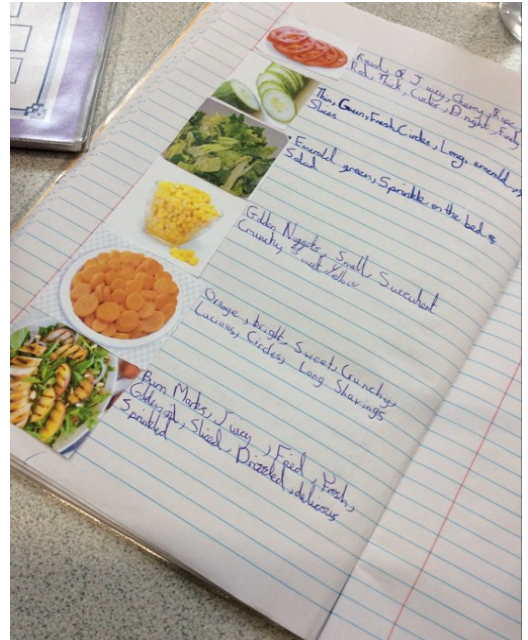 Round, Juicy, Cherry, Ripe
Red, Thick, Circles, Bright, Fresh
Thin, Green, Fresh, Circles, Long, emerald
Slices
Emerald green, Sprinkle on the bed of
Salad
Golden Nuggets, Small, Succulent
Crunchy, Sweet, Yellow
Orange, bright, Sweet, Crunchy,
Lucious, Circles, Long Shavings
Burn Marks, Juicy, Fried, Fresh,
Sliced, Drizzled, delicious
Sprinkled